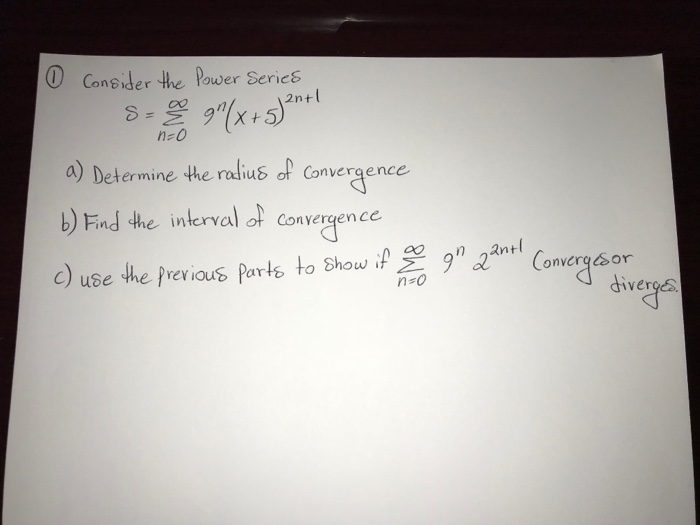 ① Consider the Power Series
S = ∞ Σ n=0 9ⁿ(x+5)²ⁿ⁺¹
a) Determine the radius of convergence
b) Find the interval of convergence
c) use the previous parts to show if ∞ Σ n=0 9ⁿ 2²ⁿ⁺¹ Converges or
diverges.